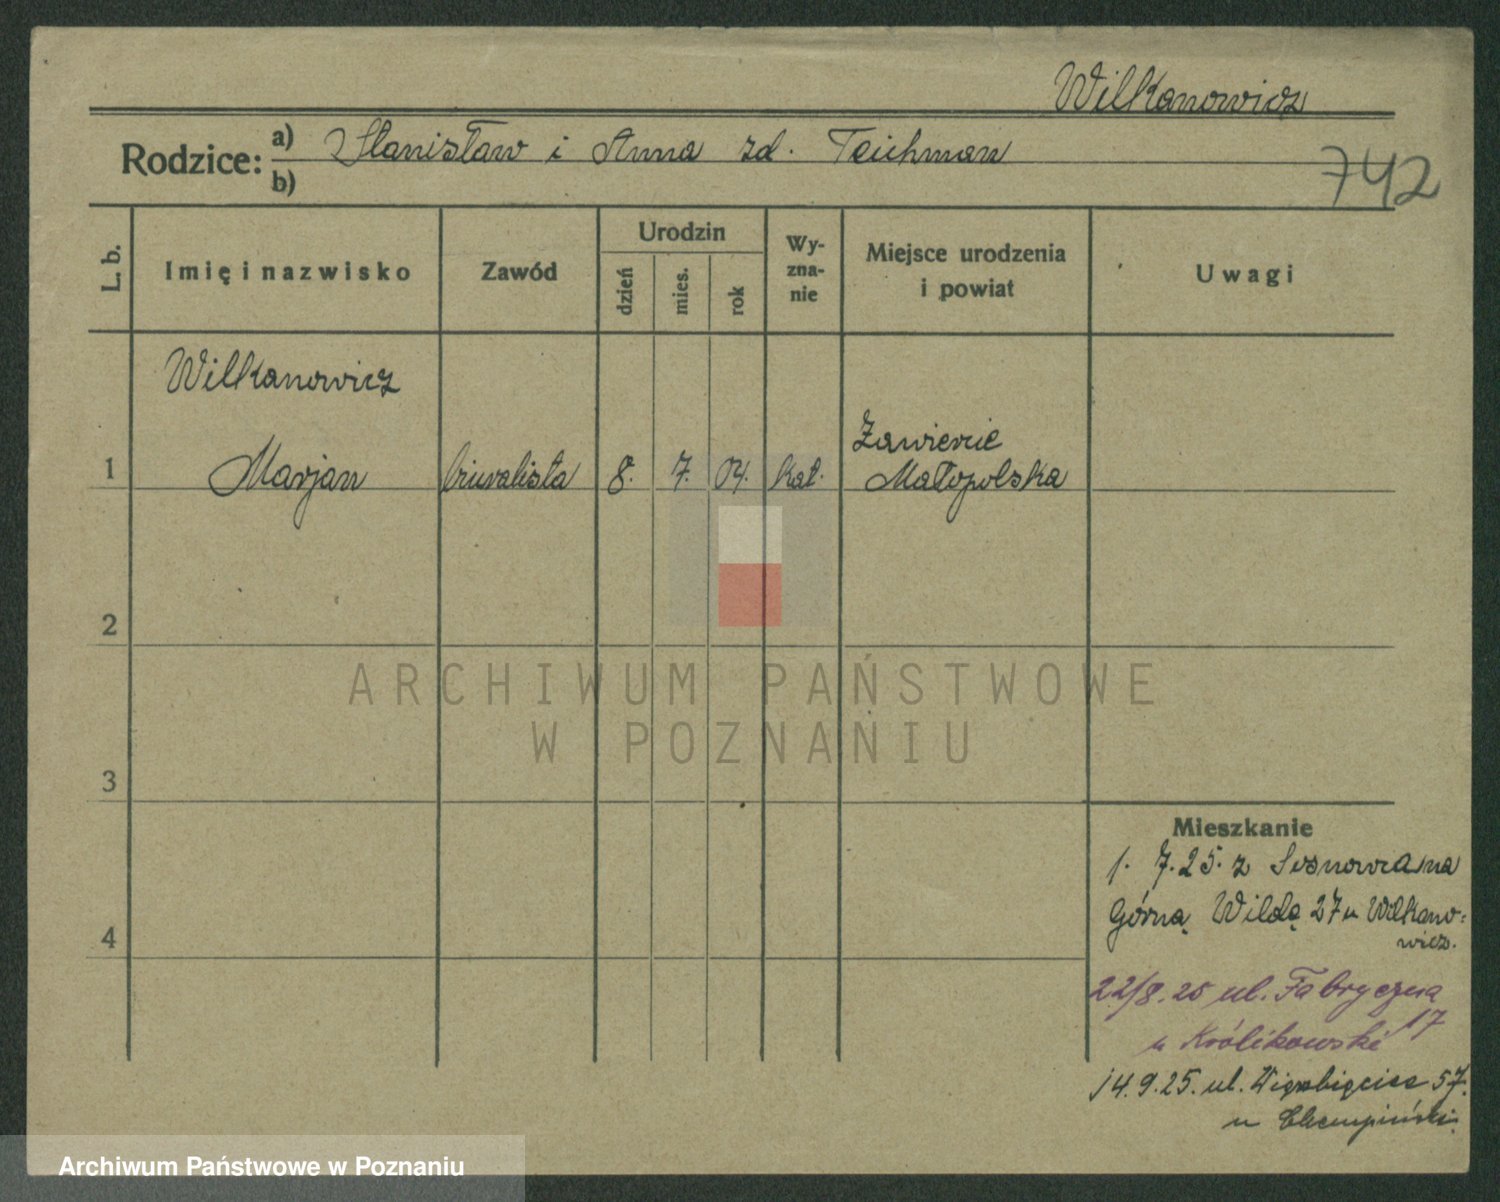 Wilkanowicz
Rodzice: a) Stanisław i Anna zd. Teichman
b)
742
L. b.
Imię i nazwisko
Zawód
Urodzin
dzień
mies.
rok
Wy-
zna-
nie
Miejsce urodzenia
i powiat
Uwagi
Wilkanowicz
1 Marjan biuralista 8. 7. 04. kat. Zawiercie
Małopolska
2
3
4
ARCHIWUM PAŃSTWOWE
W POZNANIU
Mieszkanie
1. 7. 25. z Sosnowca na
Górną Wildę 27 u Wilkano=
wicz.
22/8. 25 ul. Fabryczna
17
u Królikowski
14. 9. 25. ul. 57.
u
Archiwum Państwowe w Poznaniu